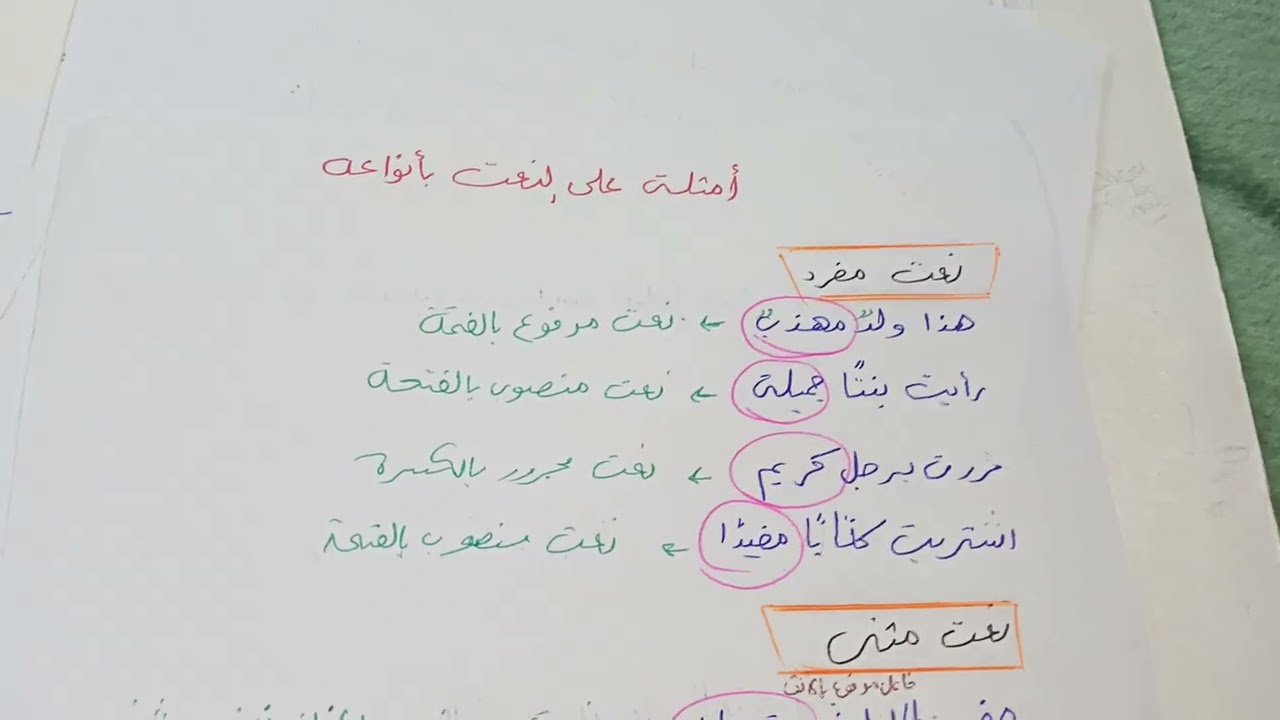 أمثلة على النعت بأنواعه
نعت مفرد
هذا ولدٌ مهذبٌ ← نعت مرفوع بالضمة
رأيت بنتًا جميلة ← نعت منصوب بالفتحة
مررت برجل كريم ← نعت مجرور بالكسرة
اشتريت كتابًا مفيدًا ← نعت منصوب بالفتحة
نعت مثنى
فاعل مرفوع بالالف